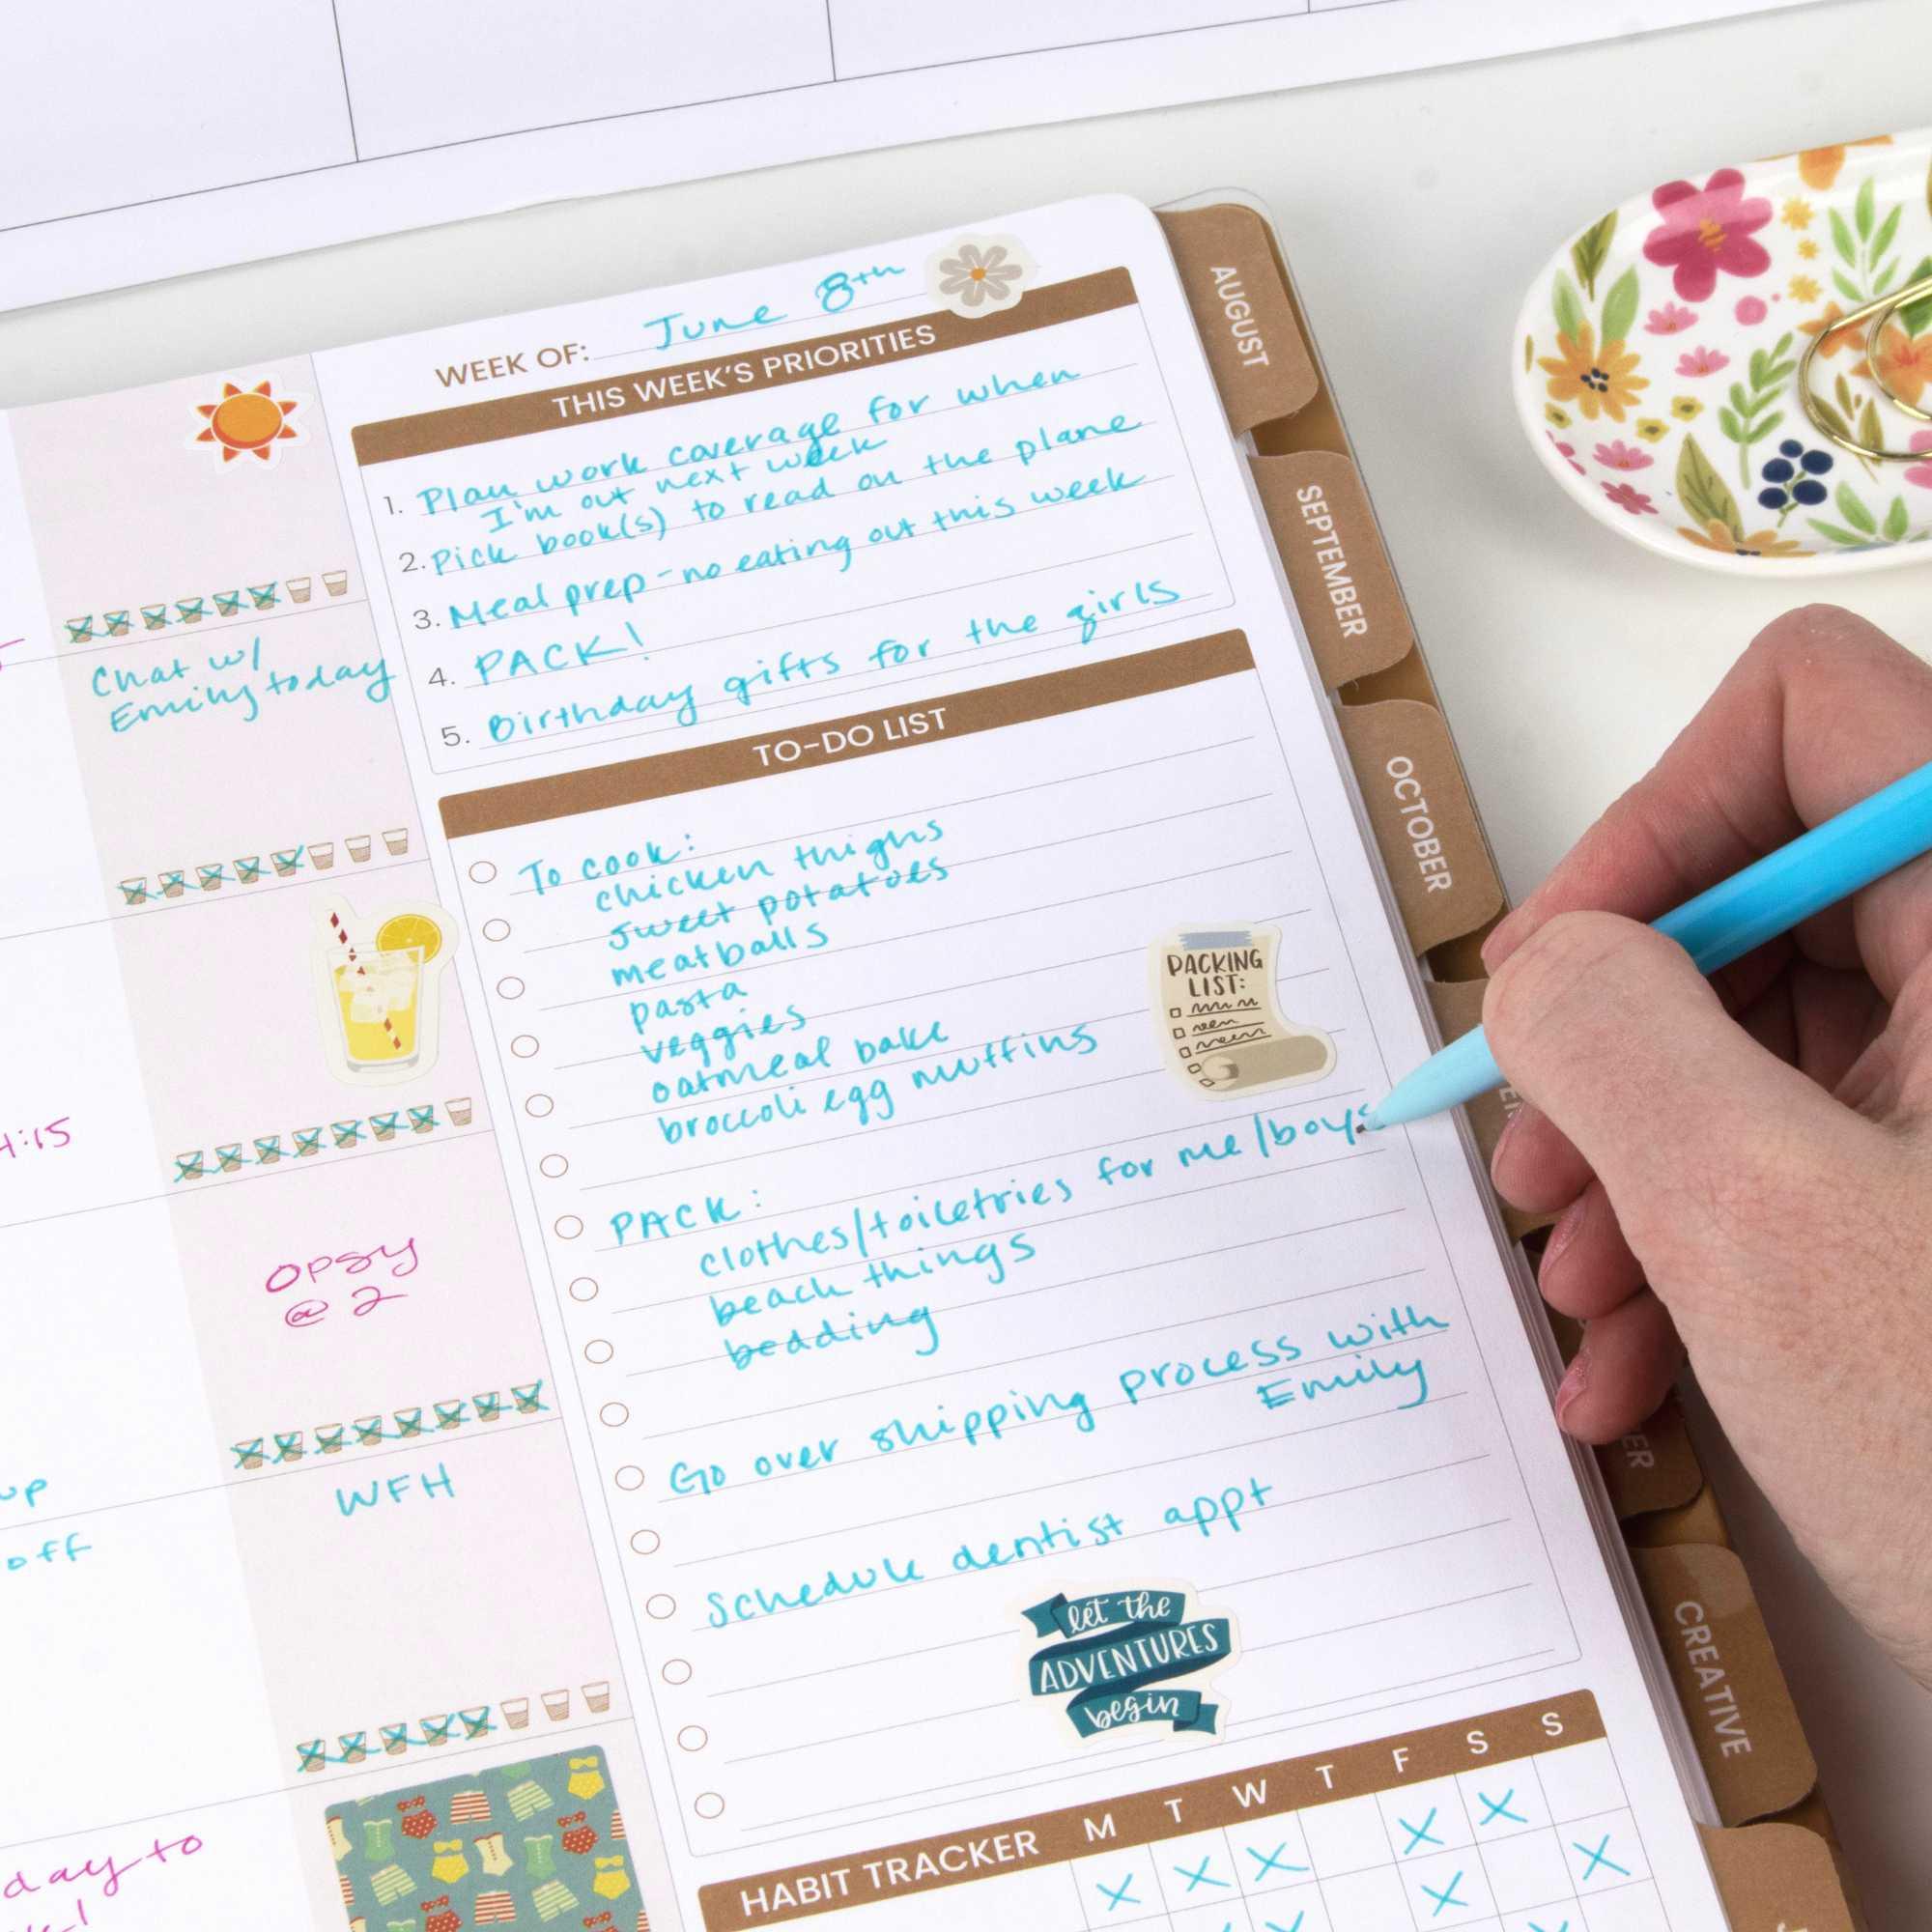 WEEK OF: June 8th
THIS WEEK'S PRIORITIES
1. Plan work coverage for when
I'm out next week
2. Pick book(s) to read on the plane
3. Meal prep - no eating out this week
4. PACK!
5. Birthday gifts for the girls
TO-DO LIST
To cook:
chicken thighs
sweet potatoes
meatballs
pasta
veggies
oatmeal bake
broccoli egg muffins
PACKING
LIST:
PACK:
clothes/toiletries for me/boys
beach things
bedding
Go over shipping process with
Emily
Schedule dentist appt
let the
ADVENTURES
begin
HABIT TRACKER M T W T F S S
Chat w/
Emily today
4:15
OPSY
@ 2
WFH
up
off
day to
AUGUST
SEPTEMBER
OCTOBER
CREATIVE